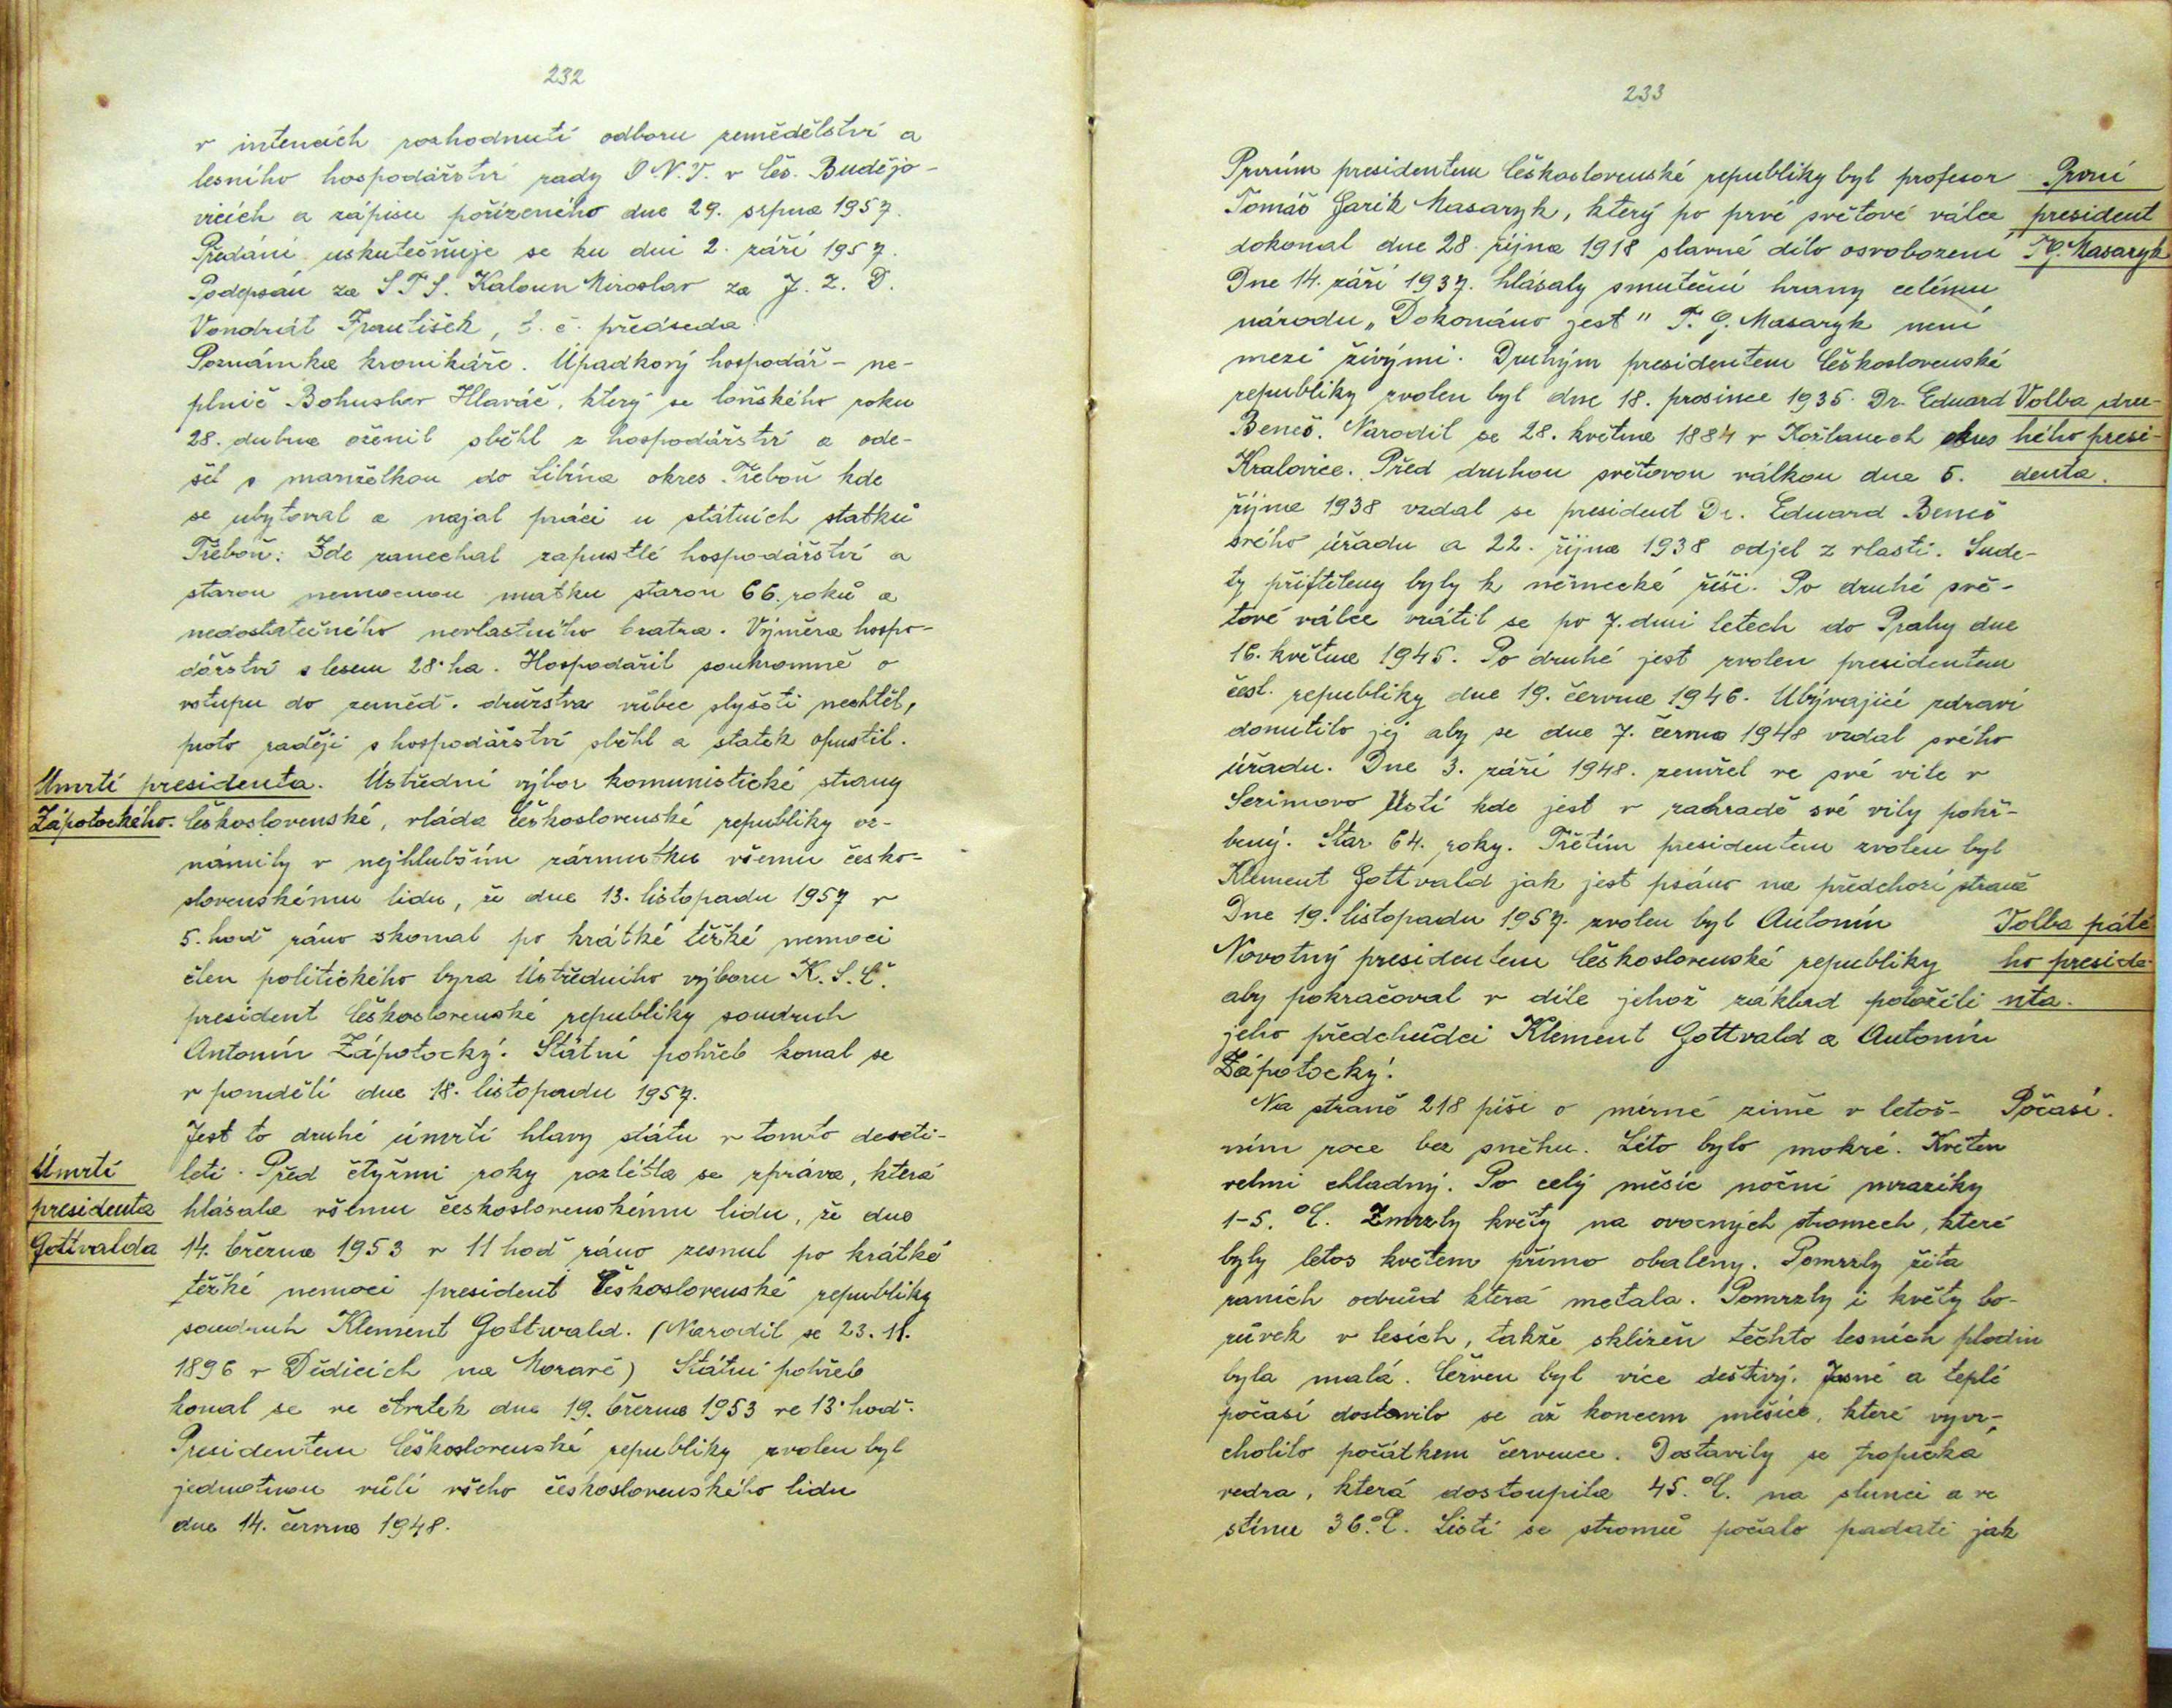 232
v intencích rozhodnutí odboru zemědělství a
lesního hospodářství rady O.N.V. v Čes. Budějo-
vicích a zápisu pořízeného dne 29. srpna 1957.
Předání uskutečňuje se ku dni 2. září 1957.
Podepsáni za S.T.S. Kaloun Miroslav za J.Z.D.
Vondrát František, t. č. předseda.
Poznámka kronikáře. Úpadkový hospodář - ne-
plnič Bohuslav Hlaváč, který se loňského roku
28. dubna oženil sběhl z hospodářství a ode-
šel s manželkou do Libína okres Třeboň kde
se ubytoval a najal práci u státních statků
Třeboň. Zde zanechal zapustlé hospodářství a
starou nemocnou matku starou 66. roků a
nedostatečného nevlastního bratra. Výměra hospo-
dářství s lesem 28 ha. Hospodařil soukromně o
vstupu do zeměd. družstva vůbec slyšeti nechtěl,
proto raději s hospodářství sběhl a statek opustil.
Úmrtí presidenta. Ústřední výbor komunistické strany
Zápotockého. Československé, vláda Československé republiky oz-
námily v nejhlubším zármutku všemu česko-
slovenskému lidu, že dne 13. listopadu 1957 v
5. hod ráno skonal po krátké těžké nemoci
člen politického byra Ústředního výboru K.S.Č.
president Československé republiky soudruh
Antonín Zápotocký. Státní pohřeb konal se
v pondělí dne 18. listopadu 1957.
Jest to druhé úmrtí hlavy státu v tomto deseti-
Úmrtí letí. Před čtyřmi roky rozlétla se zpráva, která
presidenta hlásala všemu československému lidu, že dne
Gottvalda 14. března 1953 v 11 hod ráno zesnul po krátké
těžké nemoci president Československé republiky
soudruh Klement Gottwald. (Narodil se 23. 11.
1896 v Dědicích na Moravě) Státní pohřeb
konal se ve čtvrtek dne 19. března 1953 ve 13 hod.
Presidentem Československé republiky zvolen byl
jednotnou vůlí všeho československého lidu
dne 14. června 1948.
233
Prvním presidentem Československé republiky byl profesor První
Tomáš Garik Masaryk, který po prvé světové válce president
dokonal dne 28. října 1918 slavné dílo osvobození T.G. Masaryk
Dne 14. září 1937. hlásaly smuteční hrany celému
národu „Dokonáno jest" T. G. Masaryk není
mezi živými. Druhým presidentem Československé
republiky zvolen byl dne 18. prosince 1935. Dr. Eduard Volba dru-
Beneš. Narodil se 28. května 1884 v Kožlanech okres hého presi-
Kralovice. Před druhou světovou válkou dne 5. denta.
října 1938 vzdal se president Dr. Eduard Beneš
svého úřadu a 22. října 1938 odjel z vlasti. Sude-
ty přiftěleny byly k německé říši. Po druhé svě-
tové válce vrátil se po 7. dmi letech do Prahy dne
16. května 1945. Po druhé jest zvolen presidentem
česl. republiky dne 19. června 1946. Ubývající zdraví
donutilo jej aby se dne 7. června 1948 vzdal svého
úřadu. Dne 3. září 1948. zemřel ve své vile v
Sezimovo Ústí kde jest v zahradě své vily pohř-
bený. Stár 64. roky. Třetím presidentem zvolen byl
Klement Gottvald jak jest psáno na předchozí straně
Dne 19. listopadu 1957. zvolen byl Antonín Volba páté
Novotný presidentem Československé republiky ho preside-
aby pokračoval v díle jehož základ položili nta.
jeho předchůdci Klement Gottvald a Antonín
Zápotocký.
Na straně 218 píši o mírné zimě v letoš- Počasí.
ním roce bez sněhu. Léto bylo mokré. Květen
velmi chladný. Po celý měsíc noční mrazíky
1-5. °C. Zmrzly květy na ovocných stromech, které
byly letos květem přímo obaleny. Pomrzly žita
raních odrůd která metala. Pomrzly i květy bo-
růvek v lesích, takže sklizeň těchto lesních plodin
byla malá. Červen byl více deštivý. Jasné a teplé
počasí dostavilo se až koncem měsíce, které vyvr-
cholilo počátkem července. Dostavily se tropická
vedra, která dostoupila 45. °C. na slunci a ve
stínu 36. °C. Listí se stromů počalo padati jak